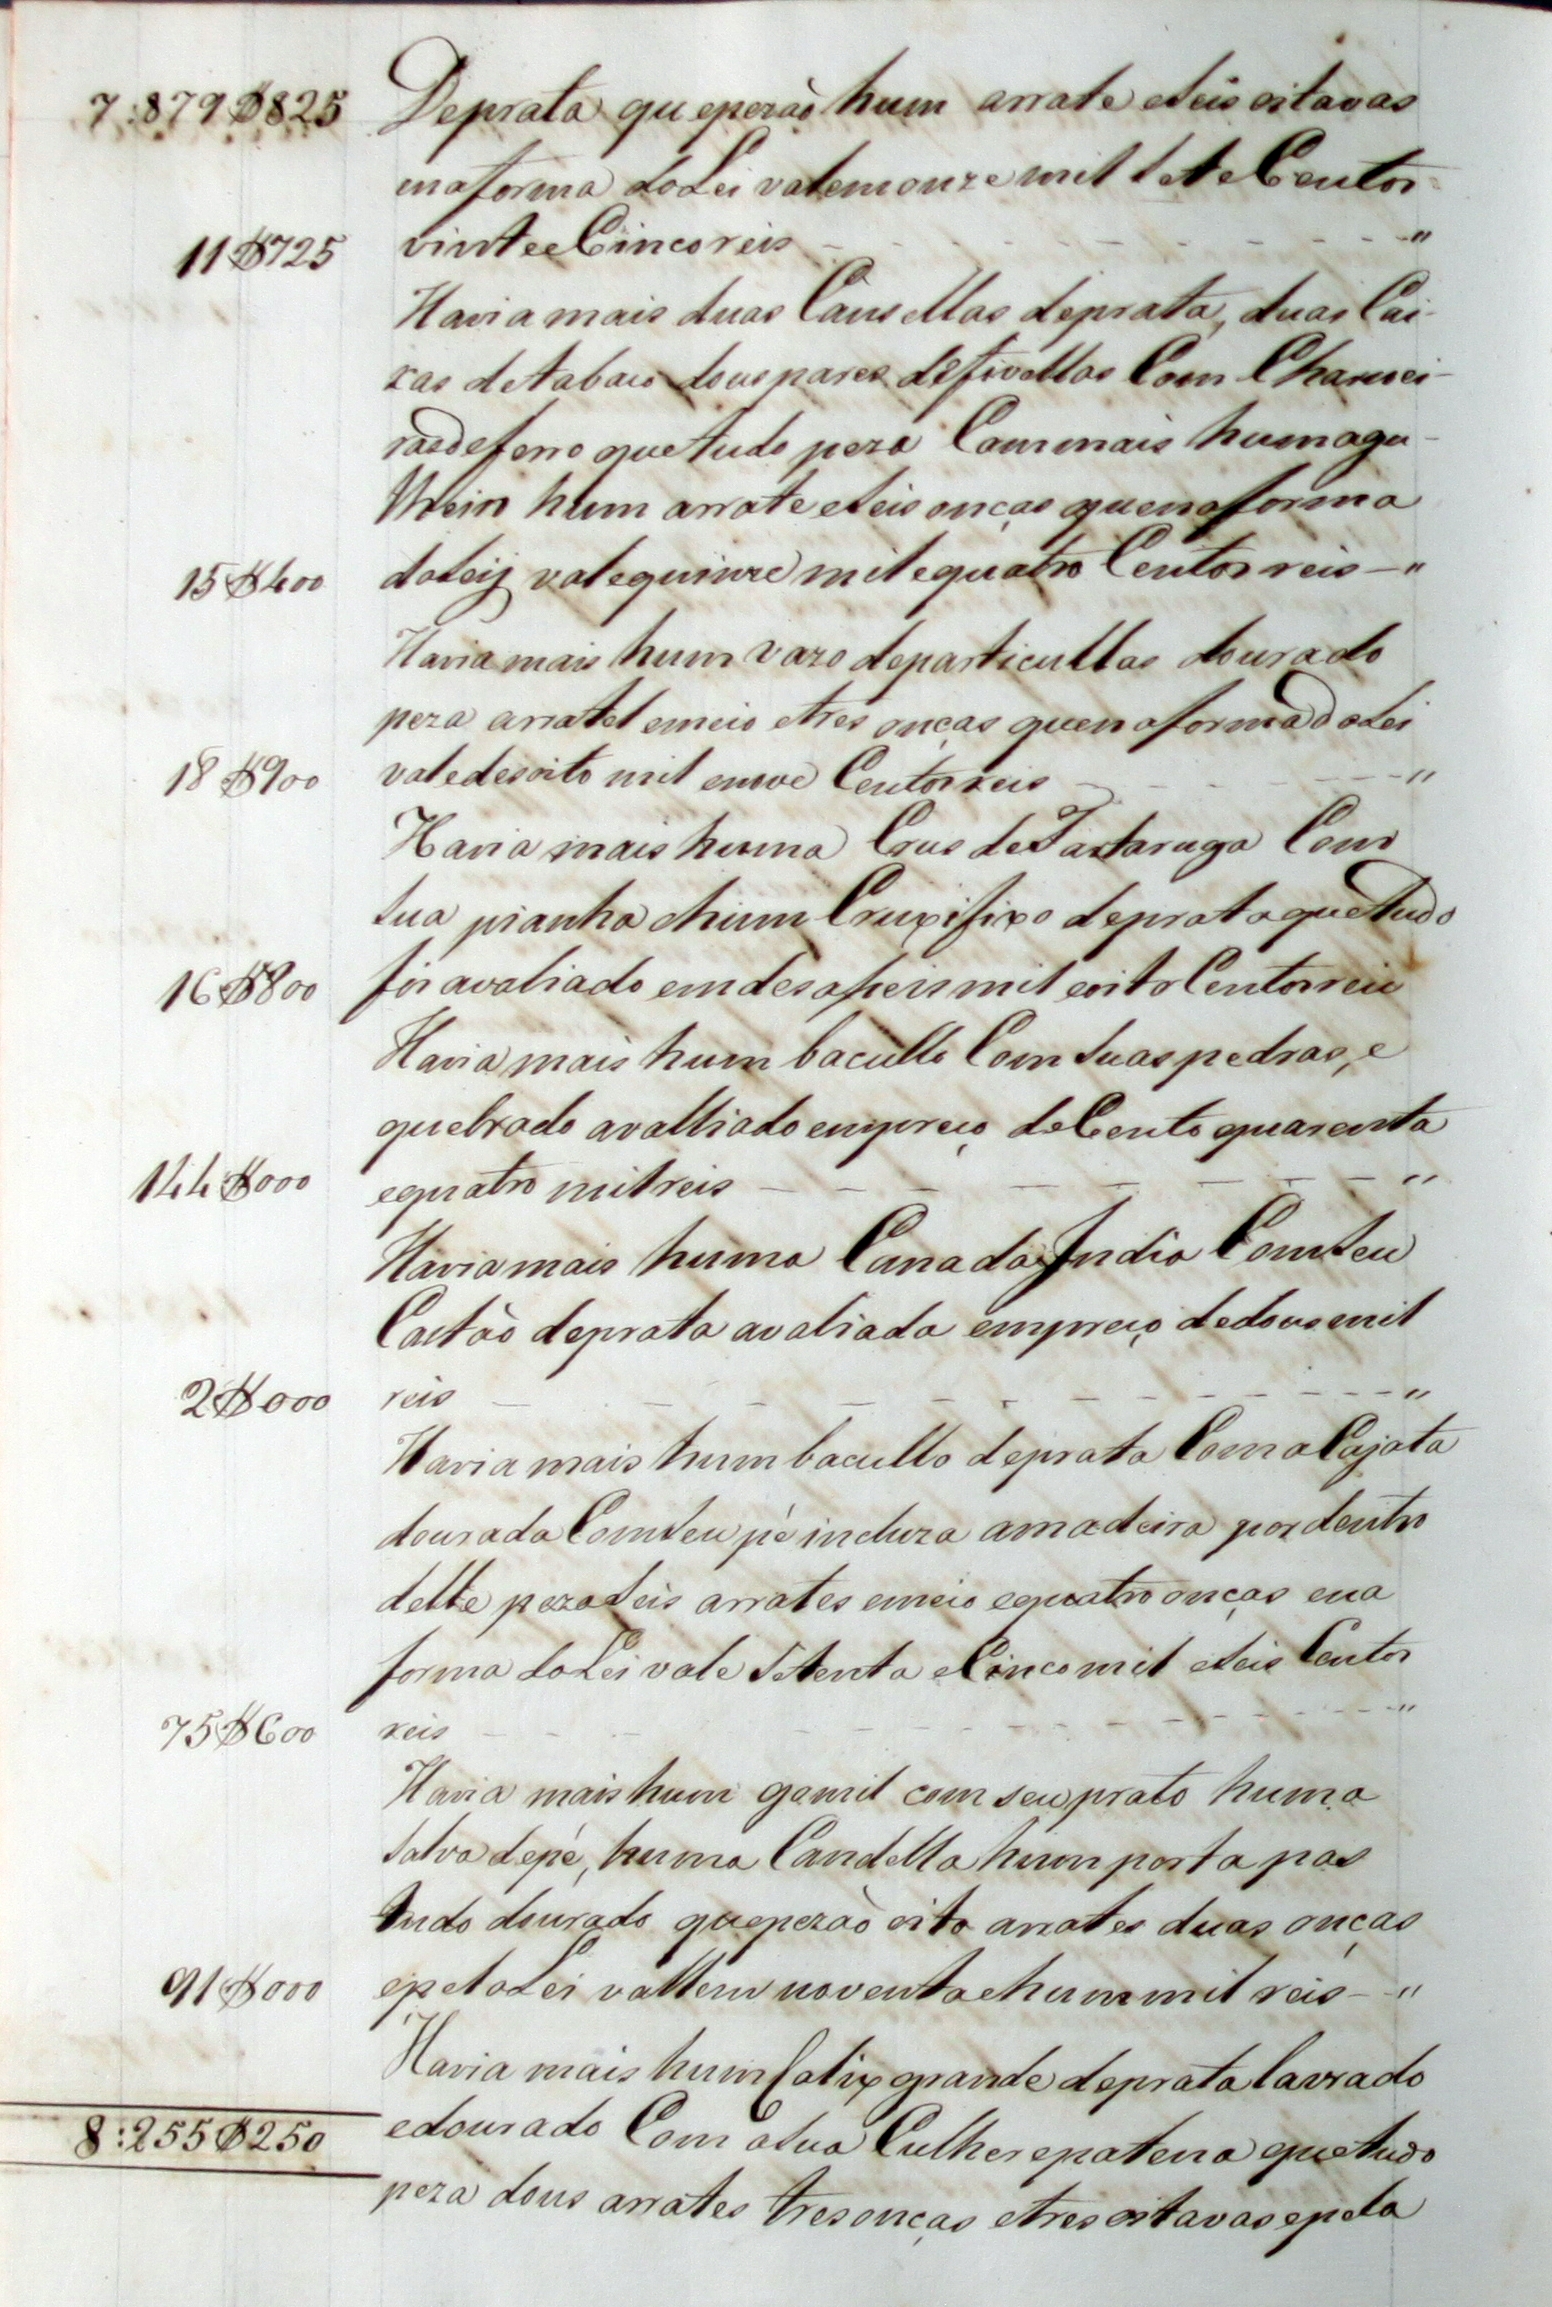 7:879$825 Deprata que pezaõ hum arrate eseis oitavas
enaforma daLei valemonze mil sete Centos
11$725 vinteeCincoreis - - - - - - - - "
Haviamais duas Causellas deprata, duas Cai-
xas detabaco douspares defivellas Com Charnei-
rasdeferro quetudo peza Commais humagu-
lhein hum arrate eseis onças quenaforma
15$400 daLeij valequinze milequatro Centos reis - "
Haviamais hum vazo departicullas dourado
peza arratel emeio etres onças quenaformadaLei
18$900 valedesoito mil enove Centos reis - - - - "
Havia mais huma Crus deTartaruga Com
sua pianha ehum Cruxifixo deprata quetudo
16$800 foi avaliado emdesaseis mil eoito Centos reis
Havia mais hum bacullo Com suas pedras, e
quebrado avalliado empreço deCento quarenta
144$000 equatro milreis - - - - - - - - "
Haviamais huma Cana da India Comseu
Castaõ deprata avaliada empreço dedousmil
2$000 reis - - - - - - - - - - "
Havia mais hum bacullo deprata ComaCajata
dourada Comseu pé incluza amadeira pordentro
delle pezaseis arrates emeio equatro onças ena
forma daLei vale Setenta eCincomil eseis Centos
75$600 reis - - - - - - - - - - "
Havia mais hum gomil com seu prato huma
salva depé, huma Candella hum porta pas
tudo dourado quepezaõ oito arrates duas onças
91$000 epelaLei vallem noventaehummil reis - - "
Havia mais hum Calix grande deprata lavrado
8:255$250 edourado Com asua Culher epatena quetudo
peza dous arrates tresonças etresoitavas epela